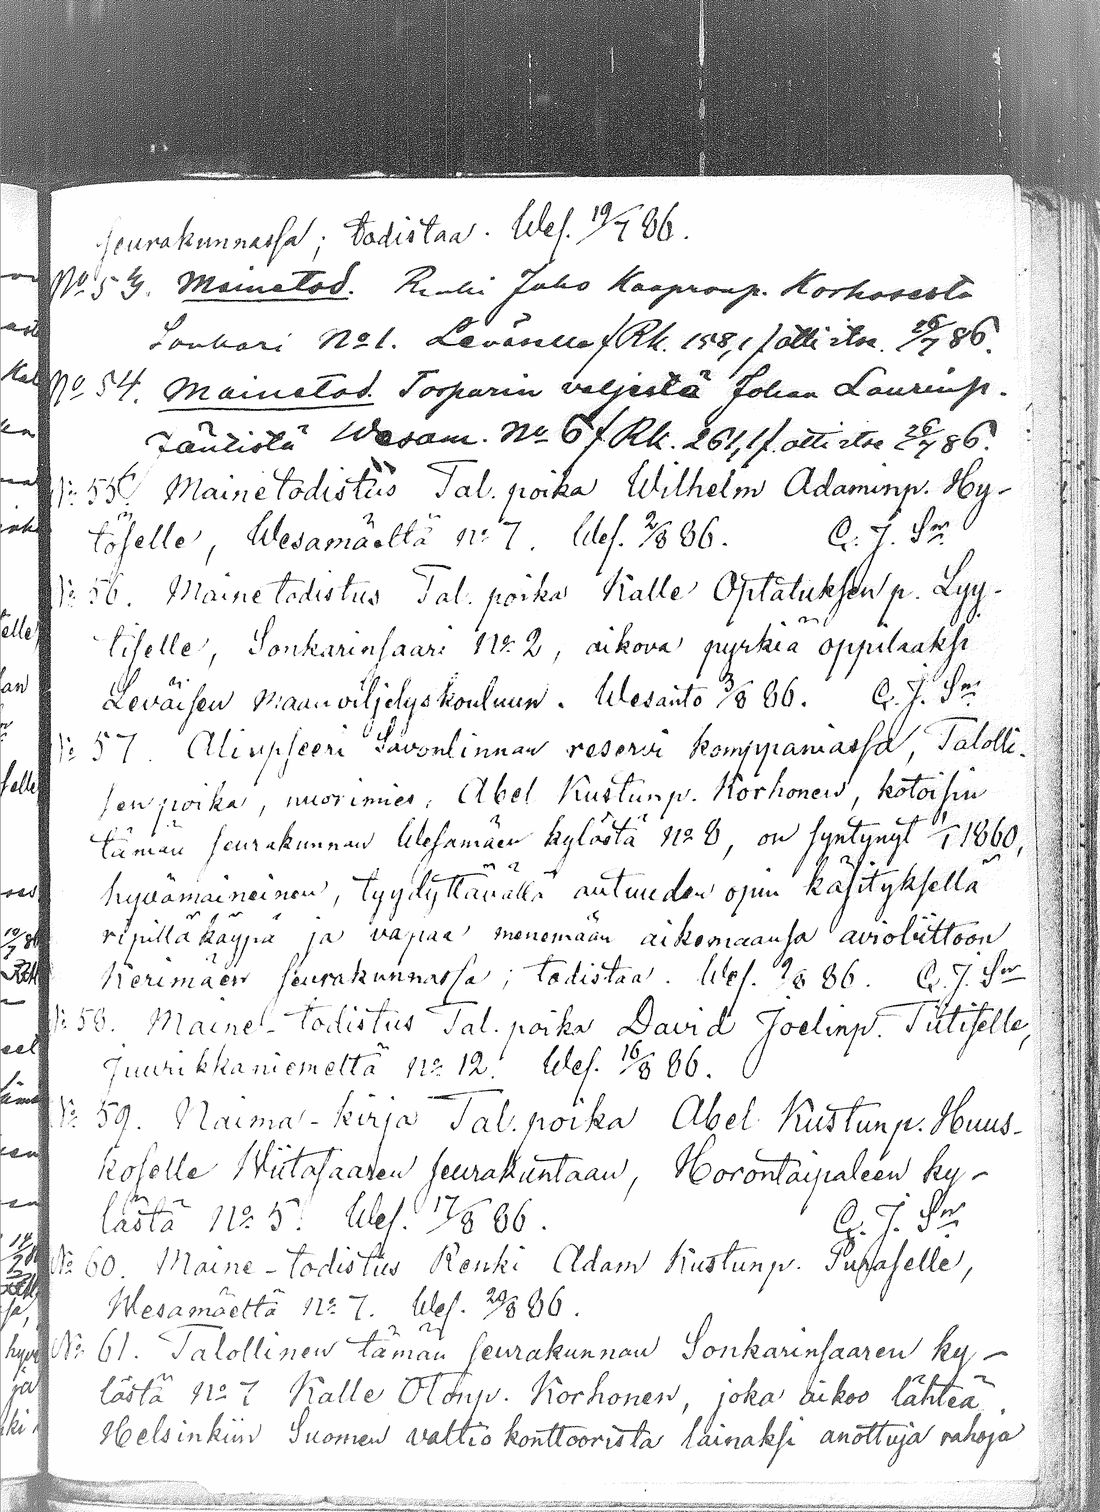 seurakunnassa; todistaa. Wes. 19/7 86.
No 53. Mainetod. Renki Juho Kaapronp. Korhosesta
Sonkari No 1. Leväselle (Rk. 158,1) otti itse. 26/7 86.
No 54. Mainetod. Torparin veljestä Johan Laurinp.
Jäntistä Wesam. No 6 (Rk. 261,1). otti itse 26/7 86.
No 55. Mainetodistus Tal. poika Wilhelm Adaminp. Hy-
töselle, Wesamäeltä No 7. Wes. 2/8 86. C. J. Snr
No 56. Mainetodistus Tal. poika Kalle Optatuksen p. Lyy-
tiselle, Sonkarinsaari No 2, aikova pyrkiä oppilaaksi
Leväisen maanviljelyskouluun. Wesanto 3/8 86. C. J. Snr
No 57. Aliupseeri Savonlinnan reservi komppaniassa, Talolli-
sen poika, nuorimies, Abel Kustunp. Korhonen, kotoisin
tämän seurakunnan Wesamäen kylästä No 8, on syntynyt 1/1 1860,
hyvämaineinen, tyydyttävällä autuuden opin käsityksellä
ripillä käypä ja vapaa menemään aikomaansa avioliittoon
Kerimäen seurakunnassa; todistaa. Wes. 9/8 86. C. J. Snr
No 58. Maine-todistus Tal. poika David Joelinp. Tiitiselle,
Juurikkaniemeltä No 12. Wes. 16/8 86.
No 59. Naima-kirja Tal. poika Abel Kustunp. Huus-
koselle Wiitasaaren seurakuntaan, Horontaipaleen ky-
lästä No 5. Wes. 17/8 86. C. J. Snr
No 60. Maine-todistus Renki Adam Kustunp. Puraselle,
Wesamäeltä No 7. Wes. 20/8 86.
No 61. Talollinen tämän seurakunnan Sonkarinsaaren ky-
lästä No 7 Kalle Olonp. Korhonen, joka aikoo lähteä
Helsinkiin Suomen valtio konttoorista lainaksi anottuja rahoja